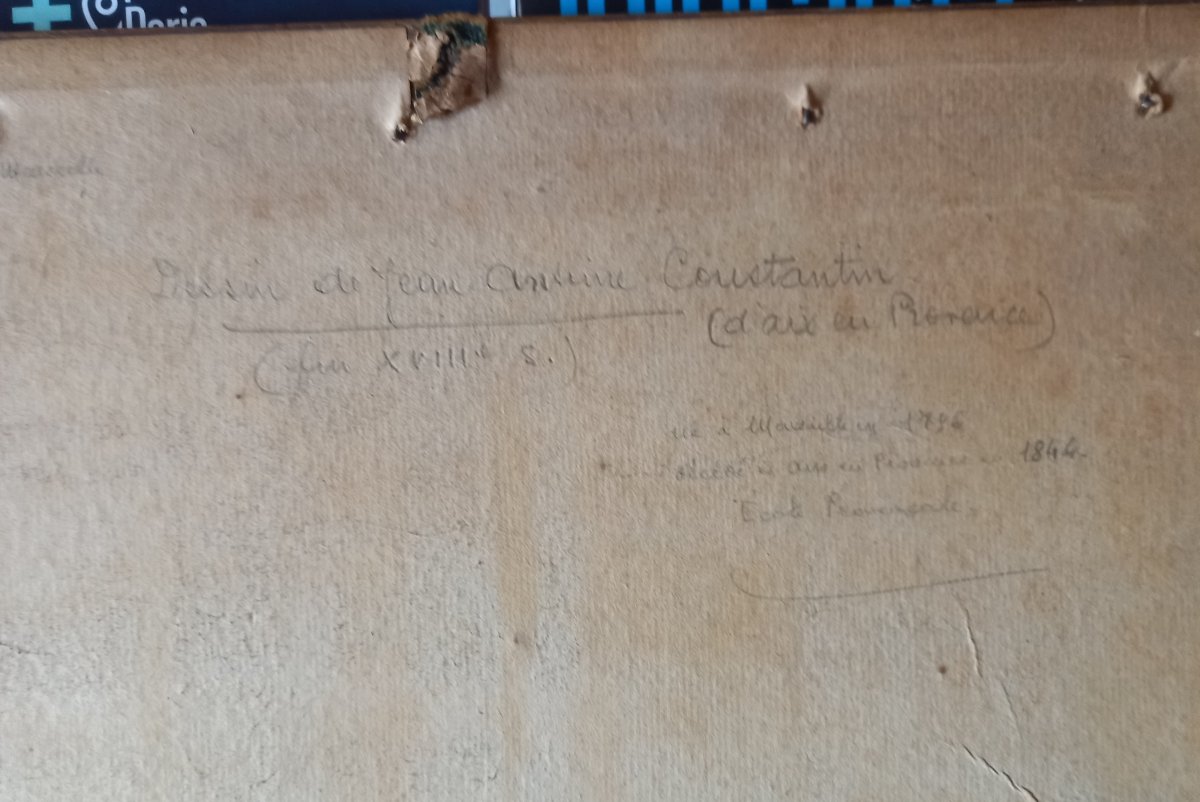 Dessin de Jean Antoine Constantin
(d'aix en Provence)
(fin XVIIIe s.)
né à Marseille en 1756
décédé à aix en Provence en 1844
Ecole Provençale.